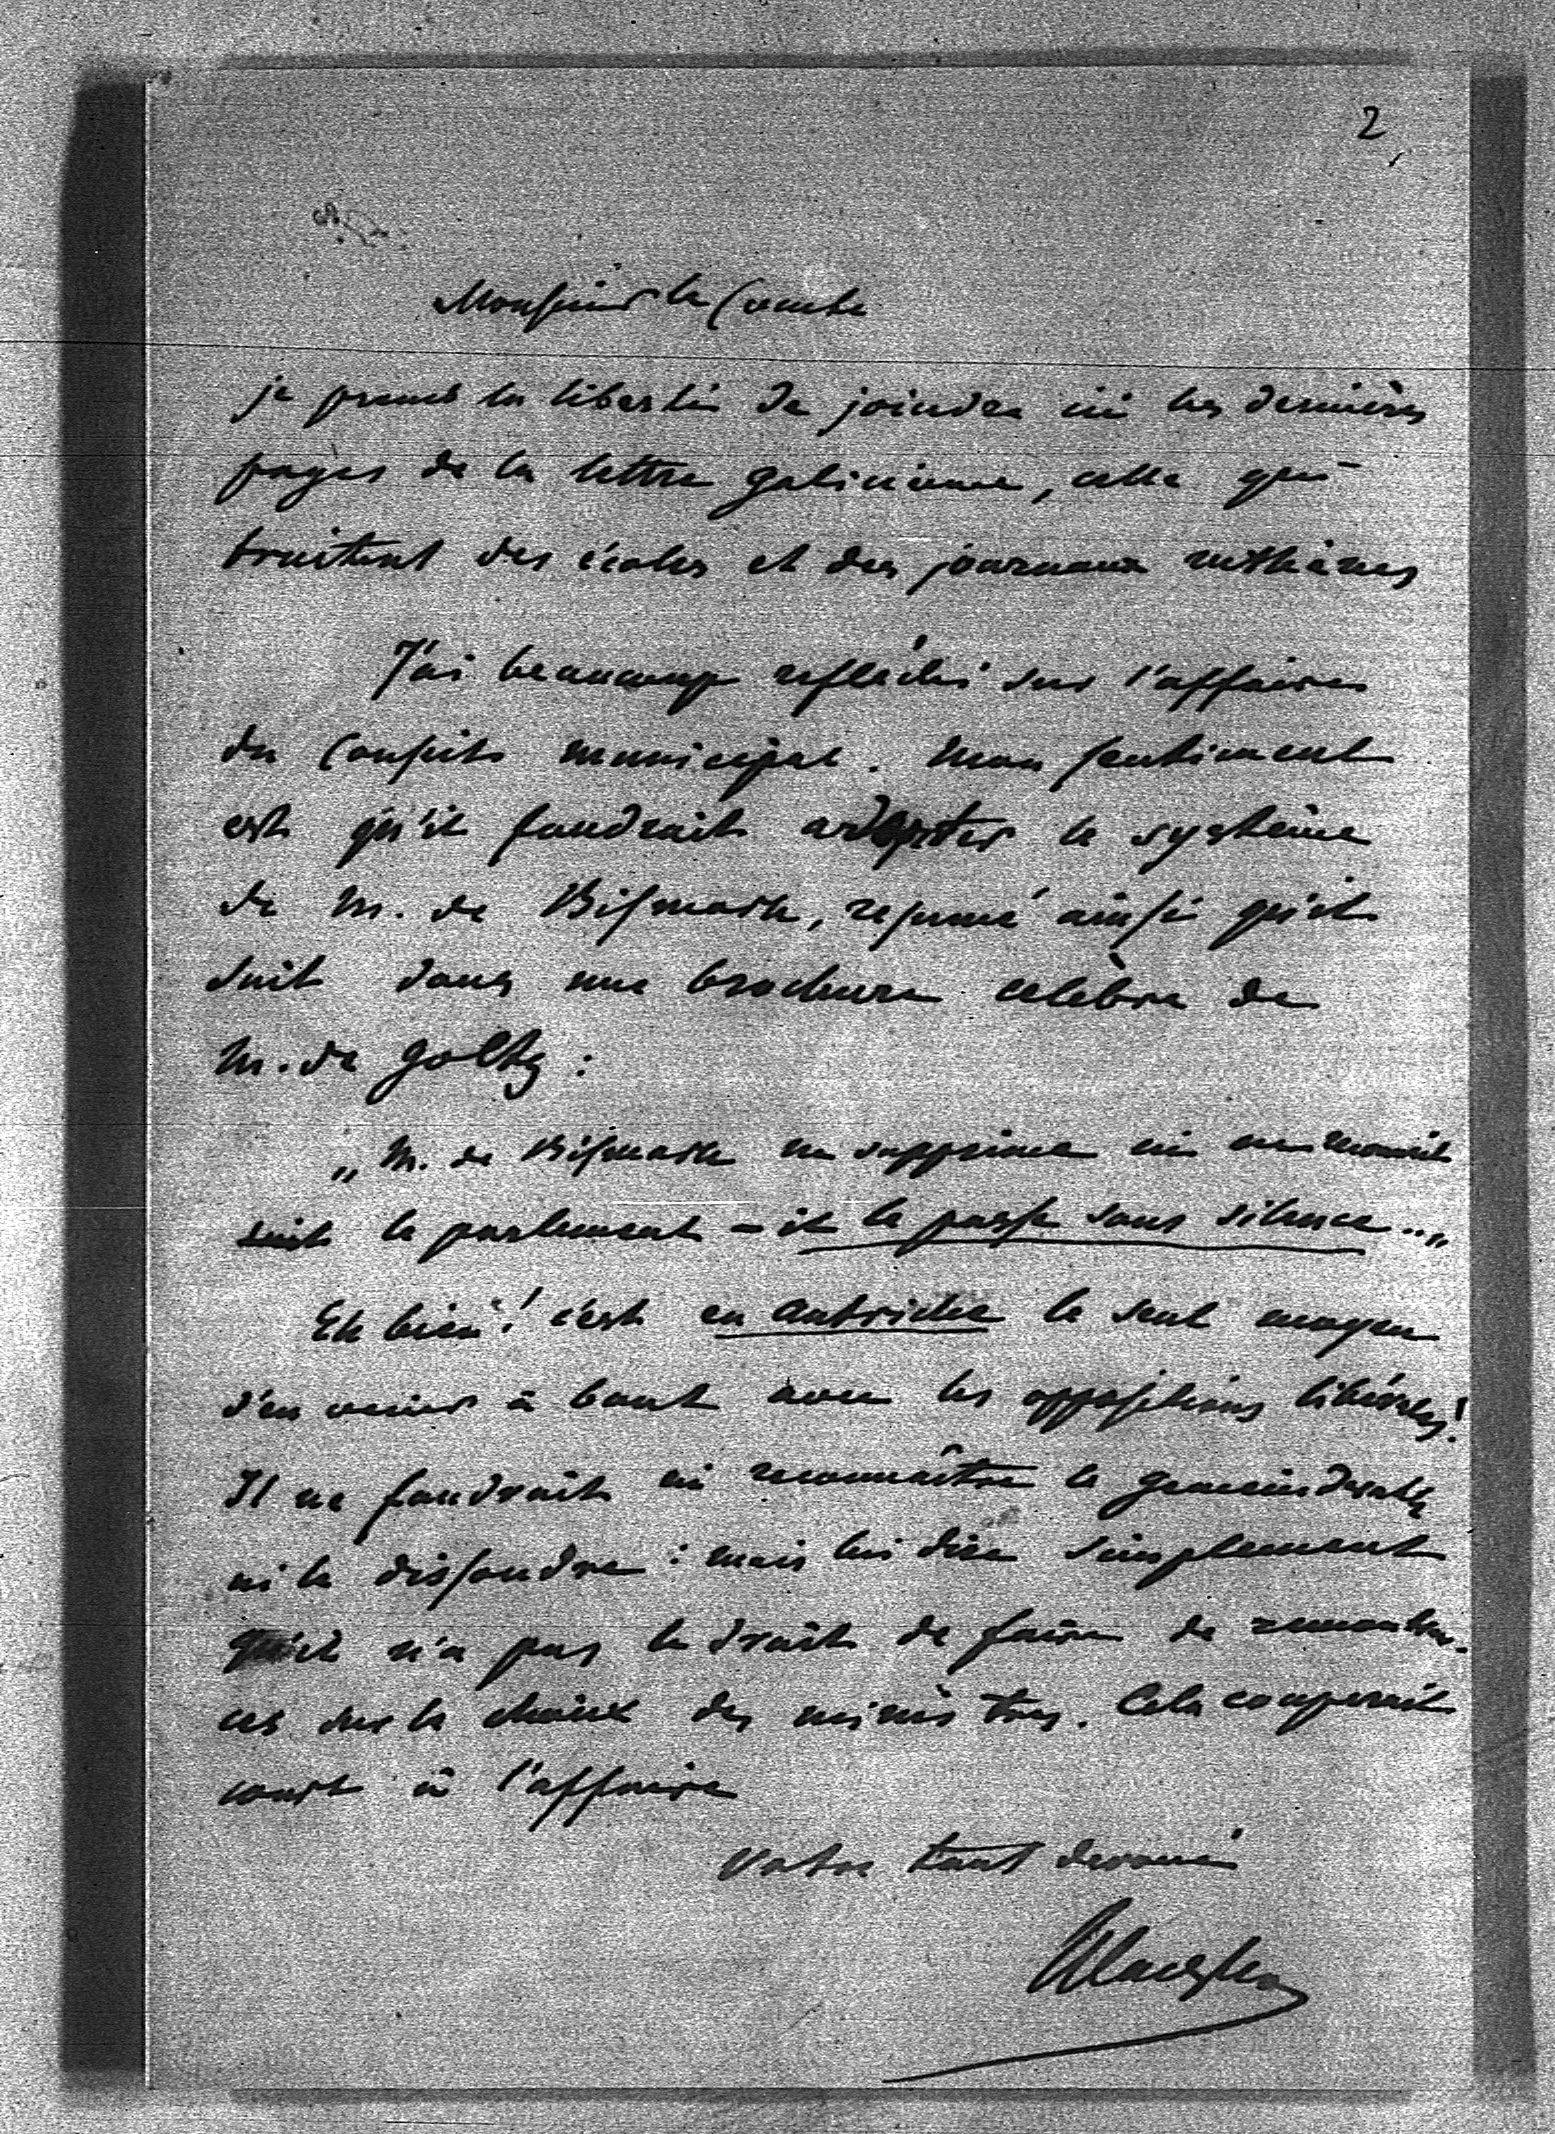 2
Monsieur le Comte
je prends la liberté de joindre ici les dernières
pages de la lettre galicienne, celle qui
traitent des écoles et des journaux ruthènes
J'ai beaucoup refléchi sur l'affaire
du Conseil municipal. Mon sentiment
est qu'il faudrait adopter le système
de M. de Bismark, resumé ainsi qu'il
suit dans une brochure celèbre de
M. de Goltz:
„M. de Bismark ne supprime ni ne reconnait
le parlement – il le passe sous silence.."
Eh bien! c'est en Autriche le seul moyen
d'en venir à bout avec les oppositions libérales!
Il ne faudrait ni reconnaître le gemeinderath
ni le dissoudre: mais lui dire simplement
qu'il n'a pas le droit de faire de remontran-
ces sur le choix des ministres. Cela couperait
court à l'affaire
Votre tout devoué
Klaczko